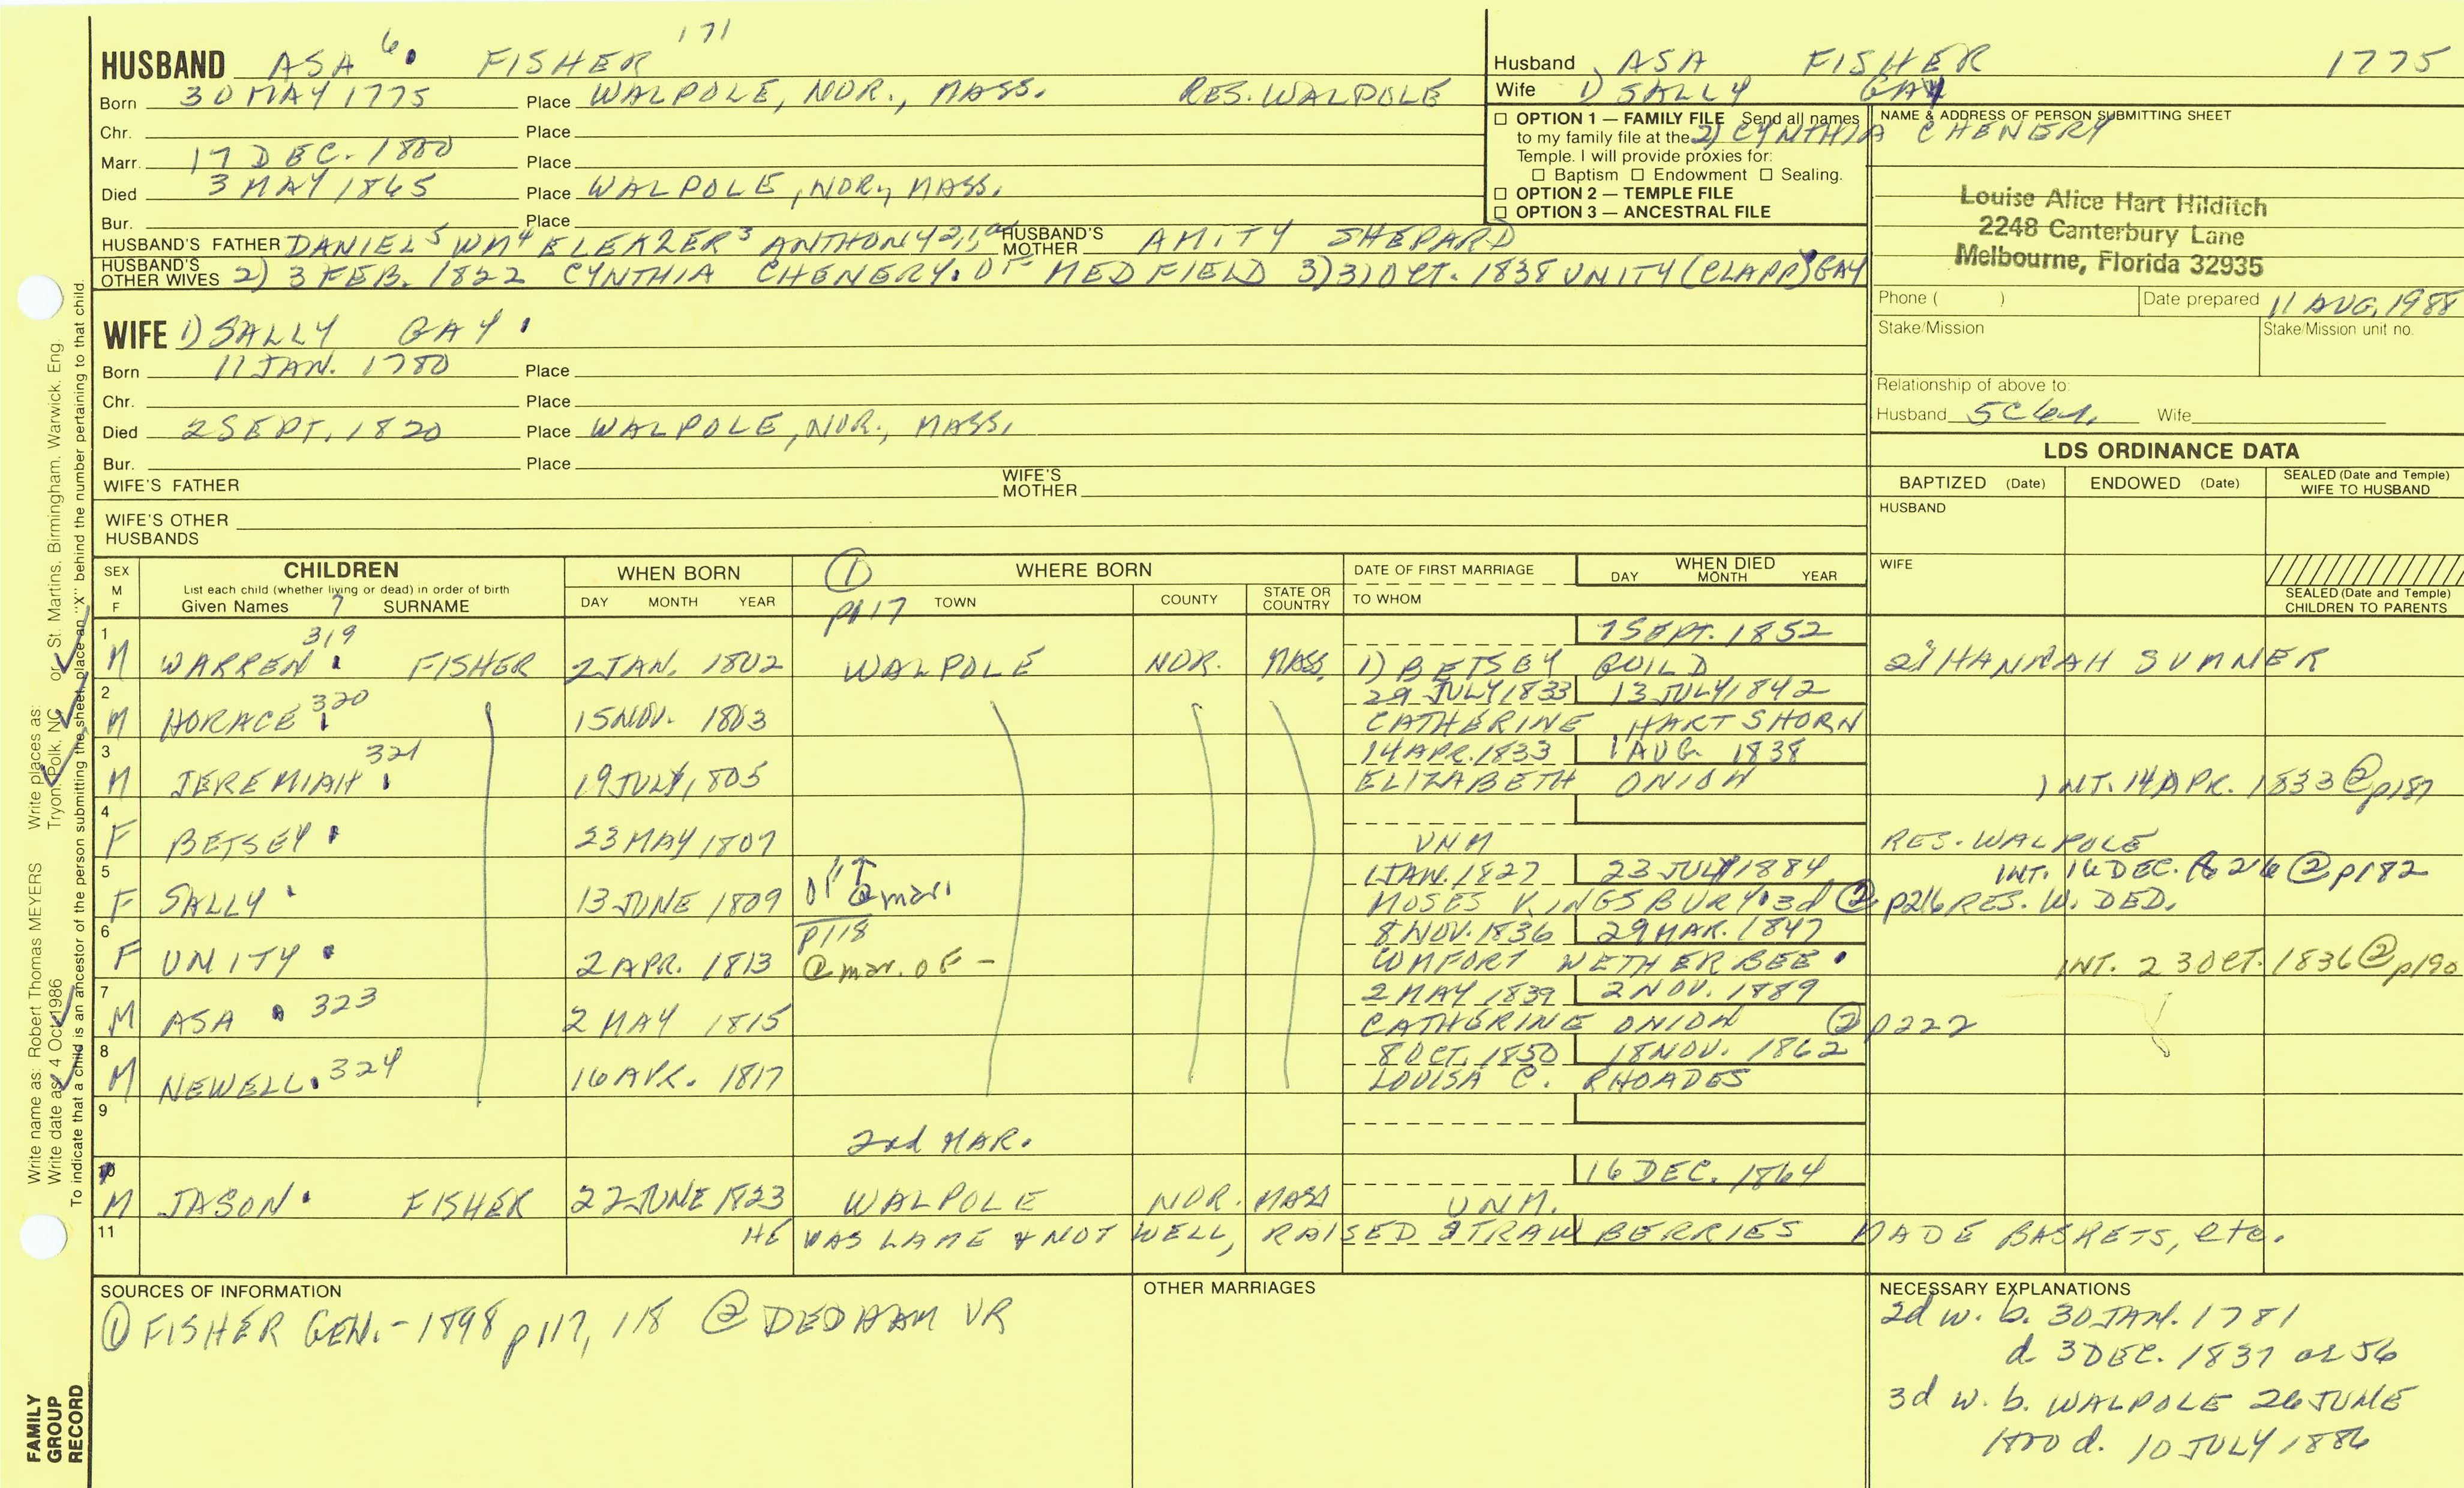 171
HUSBAND ASA 6. FISHER
Born 30 MAY 1775 Place WALPOLE, NOR., MASS. RES. WALPOLE
Chr. Place
Marr. 17 DEC. 1800 Place
Died 3 MAY 1865 Place WALPOLE, NOR., MASS.
Bur. Place
HUSBAND'S FATHER DANIEL 5 WM 4 ELEAZER 3 ANTHONY 2,1 HUSBAND'S MOTHER AMITY SHEPARD
HUSBAND'S OTHER WIVES 2) 3 FEB. 1822 CYNTHIA CHENERY. OF MEDFIELD 3) 31 OCT. 1838 UNITY (CLAPP) GAY
Husband ASA FISHER 1775
Wife 1) SALLY GAY
2) CYNTHIA CHENERY
OPTION 1 — FAMILY FILE Send all names
to my family file at the
Temple. I will provide proxies for:
Baptism Endowment Sealing.
OPTION 2 — TEMPLE FILE
OPTION 3 — ANCESTRAL FILE
NAME & ADDRESS OF PERSON SUBMITTING SHEET
Louise Alice Hart Hilditch
2248 Canterbury Lane
Melbourne, Florida 32935
Phone ( ) Date prepared 11 AUG, 1988
Stake/Mission Stake/Mission unit no.
Relationship of above to:
Husband 5C6r. Wife
WIFE 1) SALLY GAY.
Born 11 JAN. 1780 Place
Chr. Place
Died 2 SEPT. 1820 Place WALPOLE, NOR., MASS.
Bur. Place
WIFE'S FATHER WIFE'S MOTHER
WIFE'S OTHER
HUSBANDS
LDS ORDINANCE DATA
BAPTIZED (Date) ENDOWED (Date) SEALED (Date and Temple) WIFE TO HUSBAND
HUSBAND
WIFE
SEALED (Date and Temple) CHILDREN TO PARENTS
SEX M F CHILDREN WHEN BORN ① WHERE BORN DATE OF FIRST MARRIAGE WHEN DIED
List each child (whether living or dead) in order of birth
Given Names 7 SURNAME DAY MONTH YEAR p117 TOWN COUNTY STATE OR COUNTRY TO WHOM DAY MONTH YEAR
1 319 7 SEPT. 1852
M WARREN. FISHER 2 JAN. 1802 WALPOLE NOR. MASS. 1) BETSEY GUILD 2) HANNAH SUMNER
2 320 29 JULY 1833 13 JULY 1842
M HORACE 15 NOV. 1803 CATHERINE HARTSHORN
3 321 14 APR. 1833 1 AUG. 1838
M JEREMIAH. 19 JULY, 1805 ELIZABETH ONION INT. 14 APR. 1833 ② p187
4
F BETSEY. 23 MAY 1807 UNM RES. WALPOLE
5 1 JAN. 1827 23 JULY 1884 INT. 16 DEC. 1826 ② p182
F SALLY. 13 JUNE 1809 OF ↑ @ mar. MOSES KINGSBURY. 3d ② p216 RES. W. DED.
6 p118 8 NOV. 1836 29 MAR. 1847
F UNITY. 2 APR. 1813 @ mar. OF - COMFORT WETHERBEE. INT. 23 OCT. 1836 ② p190
7 2 MAY 1839 2 NOV. 1889
M ASA. 323 2 MAY 1815 CATHERINE ONION ② p222
8 8 OCT. 1850 18 NOV. 1862
M NEWELL. 324 16 APR. 1817 LOUISA C. RHOADES
9
2nd MAR.
10 16 DEC. 1864
M JASON. FISHER 22 JUNE 1823 WALPOLE NOR. MASS UNM.
11 HE WAS LAME & NOT WELL, RAISED STRAWBERRIES MADE BASKETS, etc.
SOURCES OF INFORMATION
① FISHER GEN. - 1898 p117, 118 ② DEDHAM VR
OTHER MARRIAGES
NECESSARY EXPLANATIONS
2d w. b. 30 JAN. 1781
d 3 DEC. 1837 or 56
3d w. b. WALPOLE 26 JUNE
1800 d. 10 JULY 1886
Write name as: Robert Thomas MEYERS Write places as: Tryon, Polk, NC or St. Martins, Birmingham, Warwick, Eng
Write date as: 4 Oct 1986
To indicate that a child is an ancestor of the person submitting the sheet, place an "X" behind the number pertaining to that child.
FAMILY
GROUP
RECORD